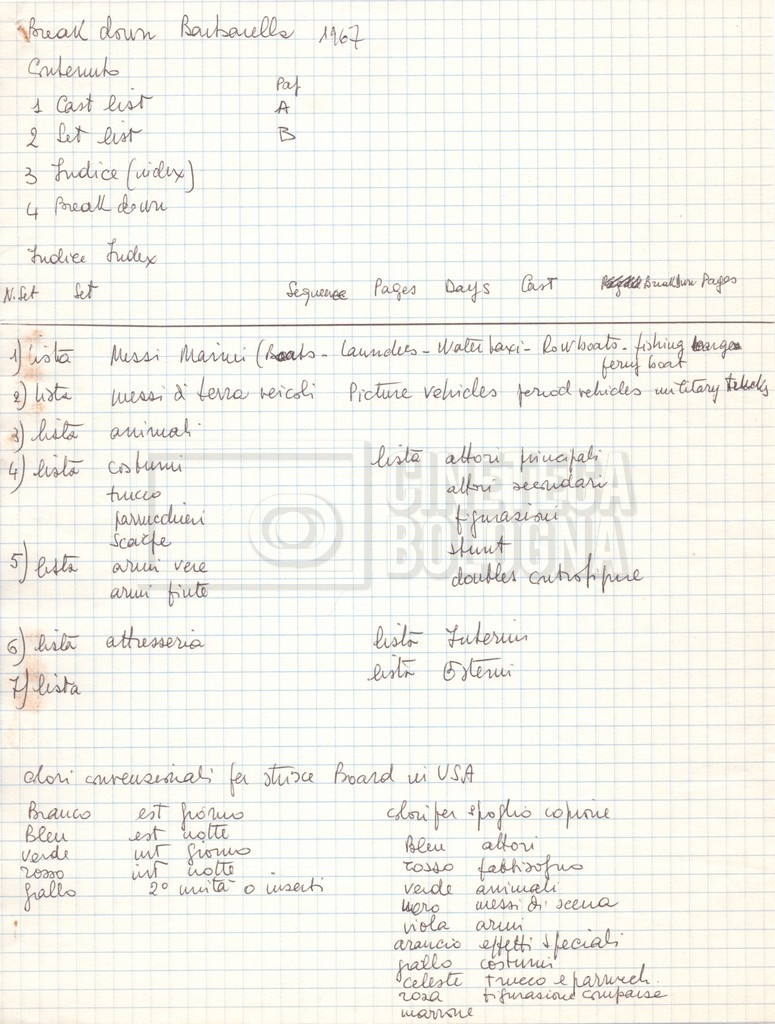 Break down Barbarella 1967
Contenuto
Pag
1 Cast list A
2 Set list B
3 Indice (index)
4 Break down
Indice Index
N. Set Set Sequence Pages Days Cast Breakdown Pages
1) lista Messi Marini (Boats - Launches - Water taxi - Rowboats - fishing barges
ferry boat
2) lista messi di terra veicoli Picture vehicles period vehicles military trucks
3) lista animali
4) lista costumi lista attori principali
trucco attori secondari
parrucchieri figurazioni
scarpe stunt
5) lista armi vere doubles controfigure
armi finte
6) lista attresseria lista Interni
7) lista lista Esterni
colori convenzionali per strisce Board in USA
Bianco est giorno colori per spoglio copione
Bleu est notte Bleu attori
verde int giorno rosso fabbisogno
rosso int notte verde animali
giallo 2° unità o inserti nero messi di scena
viola armi
arancio effetti speciali
giallo costumi
celeste trucco e parrucch.
rosa figurazione comparse
marrone
CINETECA
BOLOGNA